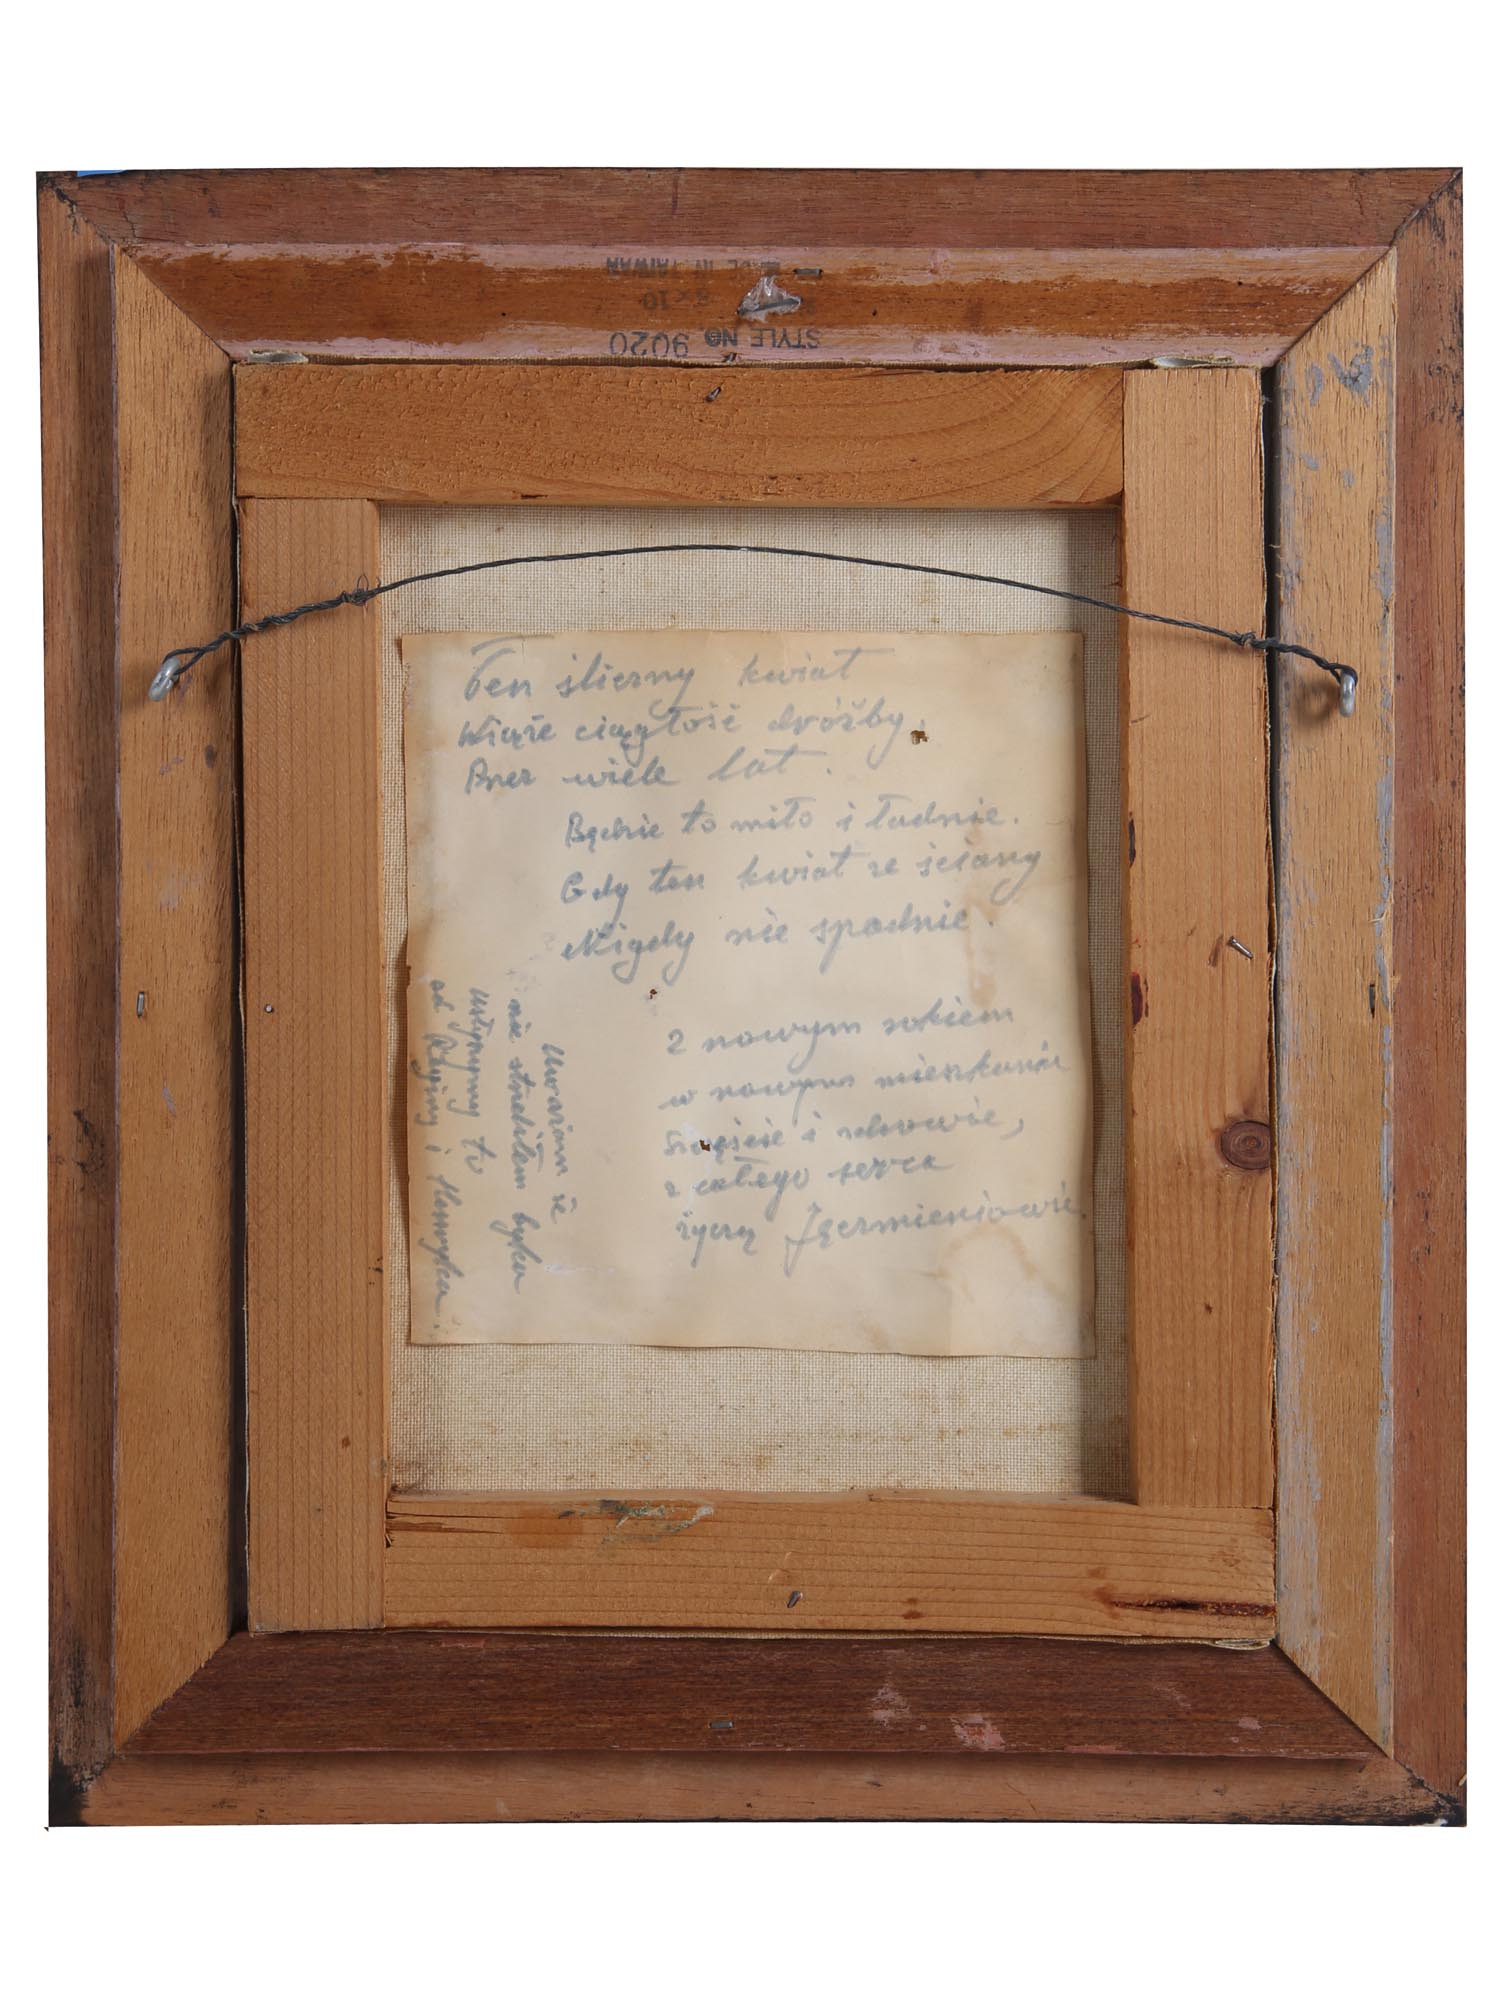 MADE IN TAIWAN
8x10
STYLE NO. 9020
Ten ślierny kwiat
Wiąże ciągłość dróżby,
Przez wiele lat.
Będzie to miło i ładnie.
Gdy ten kwiat ze ściany
Nigdy nie spadnie.
Z nowym rokiem
w nowym mieszkaniu
Szczęście i zdrowie,
z całego serca
życzą Jęczmieniowie.
Uważam że
nie strzeliłem byka
usłyszymy to
od Reginy i Henryka.